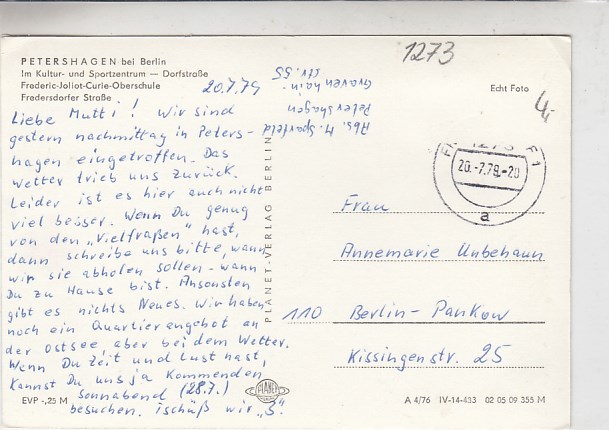 PETERSHAGEN bei Berlin
Im Kultur- und Sportzentrum — Dorfstraße
Frederic-Joliot-Curie-Oberschule
Fredersdorfer Straße
1273
Echt Foto
4,-
20.7.79
Abs. M. Sparfeld
Petershagen
Gravenhain-
str. 55
Liebe Mutti! Wir sind
gestern nachmittag in Peters-
hagen eingetroffen. Das
Wetter trieb uns zurück.
Leider ist es hier auch nicht
viel besser. Wenn Du genug
von den „Vielfraßen" hast,
dann schreibe uns bitte, wann
wir sie abholen sollen - wann
Du zu Hause bist. Ansonsten
gibt es nichts Neues. Wir haben
noch ein Quartierengebot an
der Ostsee aber bei dem Wetter.
Wenn Du Zeit und Lust hast,
kannst Du uns ja kommenden
Sonnabend (28.7.)
besuchen. Tschüß wir „3".
PLANET-VERLAG BERLIN
1273
20.-7.79.-20
a
Frau
Annemarie Unbehaun
110 Berlin-Pankow
Kissingenstr. 25
EVP -,25 M
PLANET
A 4/76 IV-14-483 02 05 09 355 M